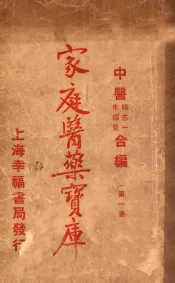 中醫
楊志一
朱振聲
合編
家庭醫藥寶庫
上海幸福書局發行